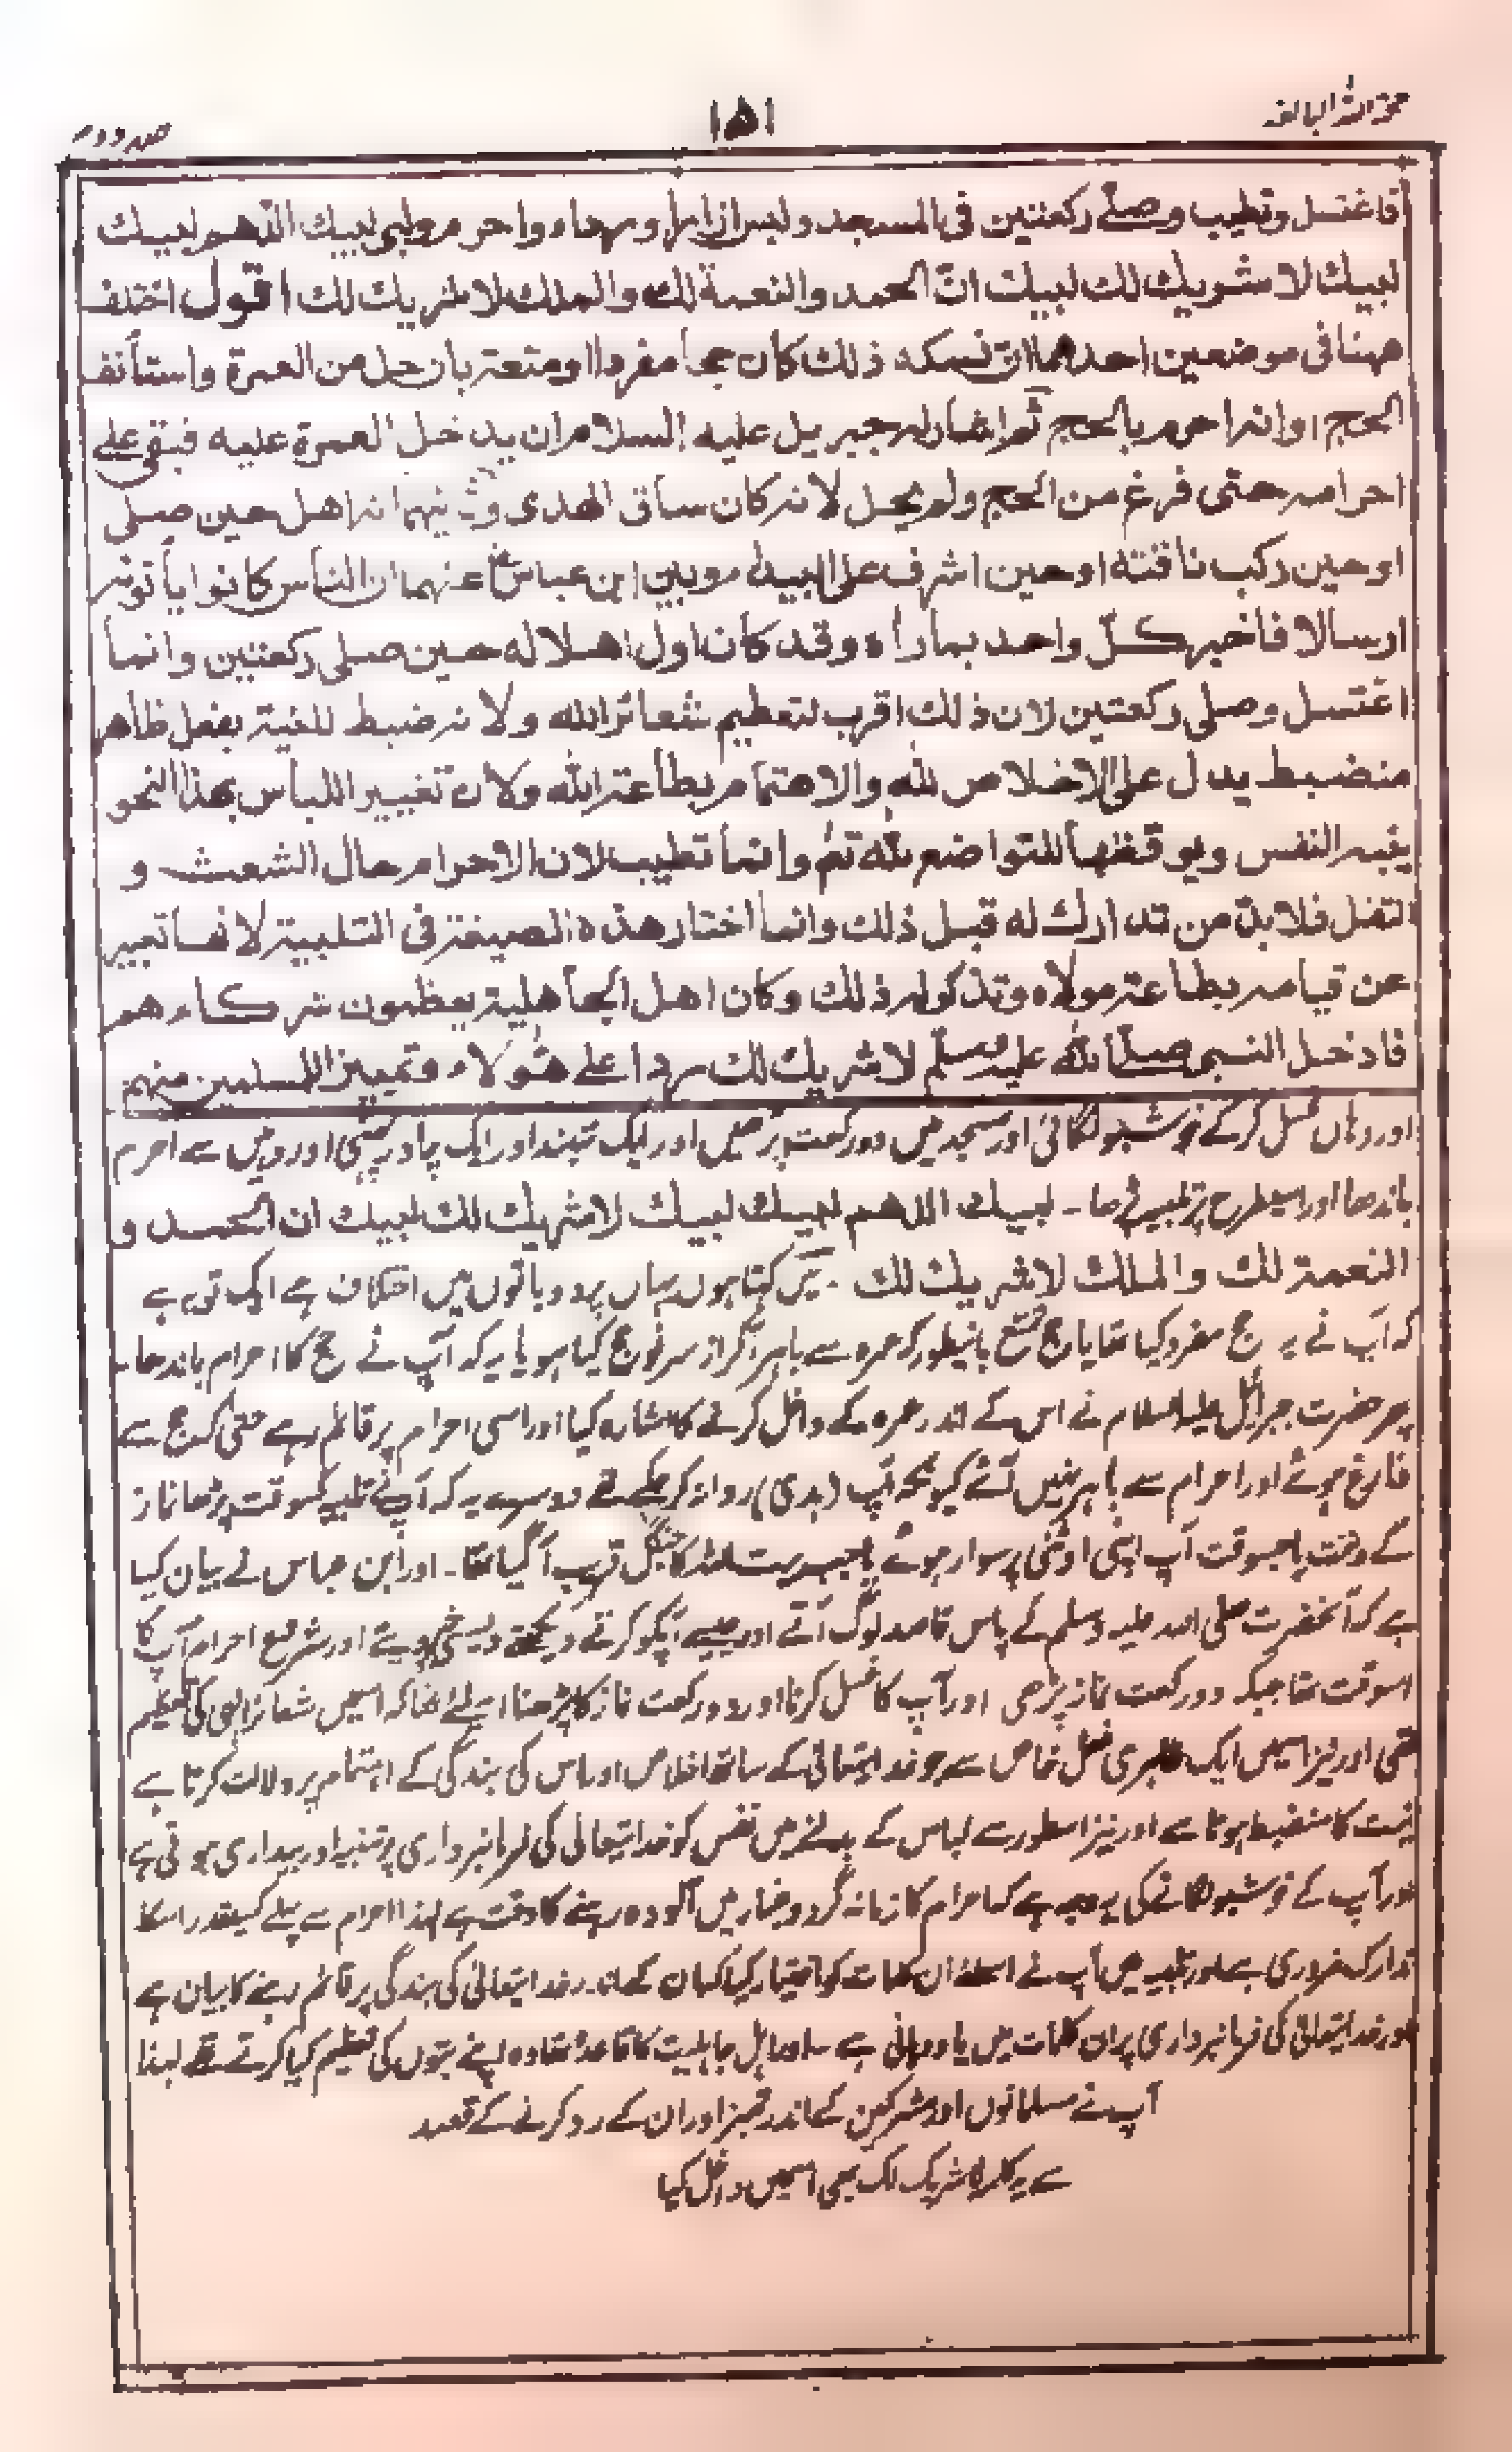 حجۃ اللہ البالغہ
۱۵۱
حصہ دوم
فاغتسل وتطيب وصلے ركعتين فی المسجد ولبس ازارا ورداء واحرم ولبى لبيك اللّٰهم لبيك
لبيك لا شريك لك لبيك انّ الحمد والنعمة لك والملك لا شريك لك اقول اختلف
ههنا فى موضعين احدهما ان نسكه ذلك كان حجا مفردا او متعة بان حل من العمرة واستأنف
الحج او انه احرم بالحج ثم اشار له جبريل عليه السلام ان يدخل العمرة عليه فبقى على
احرامه حتى فرغ من الحج ولم يحل لانه كان ساق الهدى وثانيهما انه اهل حين صلى
او حين ركب ناقته او حين اشرف على البيداء وبين ابن عباس عنهما ان الناس كانوا يأتونه
ارسالا فاخبر كلّ واحد بما رأه وقد كان اول اهلاله حين صلى ركعتين وانما
اغتسل وصلى ركعتين لان ذلك اقرب لتعظيم شعائر الله ولانه ضبط للنية بفعل ظاهر
منضبط يدل على الاخلاص لله والاهتمام بطاعة الله ولان تغيير اللباس بهذا النحو
ينبه النفس ويوقظها للتواضع لله تعٰ وانما تطيب لان الاحرام حال الشعث و
التفل فلا بدّ من تدارك له قبل ذلك وانما اختار هذه الصيغة فى التلبية لانها تعبير
عن قيامه بطاعة مولاه وتذكر له ذلك وكان اهل الجاهلية يعظمون شركاءهم
فادخل النبى صلى الله عليه وسلم لا شريك لك ردا على هؤلاء وتمييزا للمسلمين منهم
اور وہاں غسل کرکے خوشبو لگائی اور مسجد میں دو رکعت پڑھیں اور ایک تہبند اور ایک چادر پہنی اور وہیں سے احرام
باندھا اور اسطرح پر تلبیہ پڑھا ۔ لبيك اللهم لبيك لبيك لا شريك لك لبيك ان الحمد و
النعمة لك والملك لا شريك لك ۔ میں کہتا ہوں یہاں پر دو باتوں میں اختلاف ہے ایک تو یہ ہے
کہ آپ نے یہ حج مفرد کیا تھا یا حج تمتع بانیطور کہ عمرہ سے باہر آکر از سر نو حج کیا ہو یا یہ کہ آپ نے حج کا احرام باندھا۔
پھر حضرت جبرائیل علیہ السلام نے اس کے اندر عمرہ کے داخل کرنے کا اشارہ کیا اور اسی احرام پر قائم رہے حتی کہ حج سے
فارغ ہوئے اور احرام سے باہر نہیں آئے کیونکہ آپ (ہدی) روانہ کرچکے تھے دوسرے یہ کہ آپنے تلبیہ کسوقت پڑھا نماز
کے وقت یا جسوقت آپ اپنی اونٹنی پر سوار ہوئے یا جب بیت اللہ کا جنگل قریب آگیا تھا۔ اور ابن عباس نے بیان کیا
ہے کہ آنحضرت صلی اللہ علیہ وسلم کے پاس قاصد لوگ آتے اور جیسے آپکو کرتے دیکھتے ویسی خبر دیتے اور شروع احرام آپ کا
اسوقت تھا جبکہ دو رکعت نماز پڑھی اور آپ کا غسل کرنا اور دو رکعت نماز کا پڑھنا اسلئے تھا کہ اسمیں شعائر الہی کی تعظیم
تھی اور نیز اسمیں ایک ظاہری فعل خاص سے جو خدا تعالیٰ کے ساتھ اخلاص اور اس کی بندگی کے اہتمام پر دلالت کرتا ہے
نیت کا منضبط ہونا ہے اور نیز اسطور سے لباس کے بدلنے میں نفس کو خدا تعالیٰ کی فرمانبرداری پر تنبیہ اور بیداری ہوتی ہے
اور آپ کے خوشبو لگانے کی یہ وجہ ہے کہ احرام کا زمانہ گرد و غبار میں آلودہ رہنے کا وقت ہے لہذا احرام سے پہلے کسیقدر اسکا
تدارک ضروری ہے اور تلبیہ میں آپ نے اسلئے ان کلمات کو اختیار کیا کہ ان کے اندر خدا تعالیٰ کی بندگی پر قائم رہنے کا بیان ہے
اور خدا تعالیٰ کی فرمانبرداری پر ان کلمات میں یاددہانی ہے ۔ اور اہل جاہلیت کا قاعدہ تھا وہ اپنے بتوں کی تعظیم کیا کرتے تھے لہذا
آپ نے مسلمانوں اور مشرکین کے اندر تمیز اور ان کے رد کرنے کے قصد
سے یہ کلمہ لا شریک لک بھی اسمیں داخل کیا